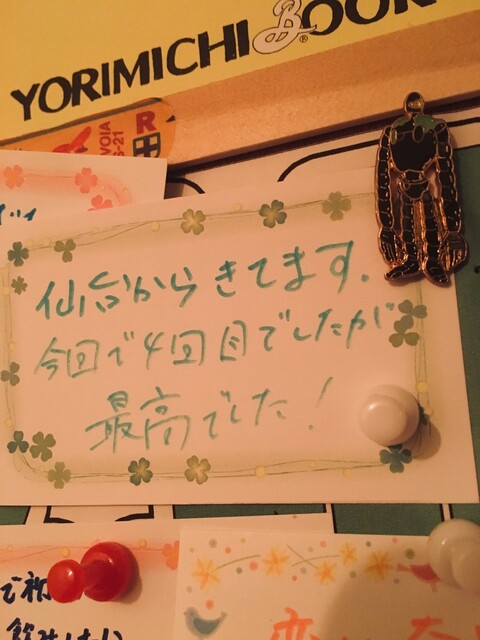 YORIMICHI BOOK
仙台からきてます.
今回で4回目でしたが
最高でした!